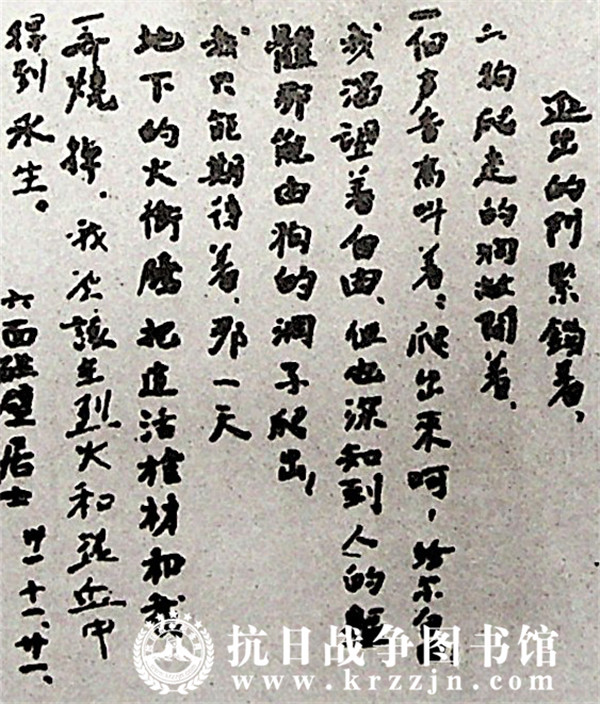 進出的門緊鎖着，
狗爬走的洞敞開着．
一個声音高叫着：爬出來呵，給尔自由
我渴望着自由、但也深知到人的軀
體那能由狗的洞子爬出！
我只能期待着、那一天
地下的火衝騰把這活棺材和我
一齊燒掉．我应該在烈火和熱血中
得到永生。
六面碰壁居士 卅一、十一、廿一、
抗日战争图书馆
www.krzzjn.com